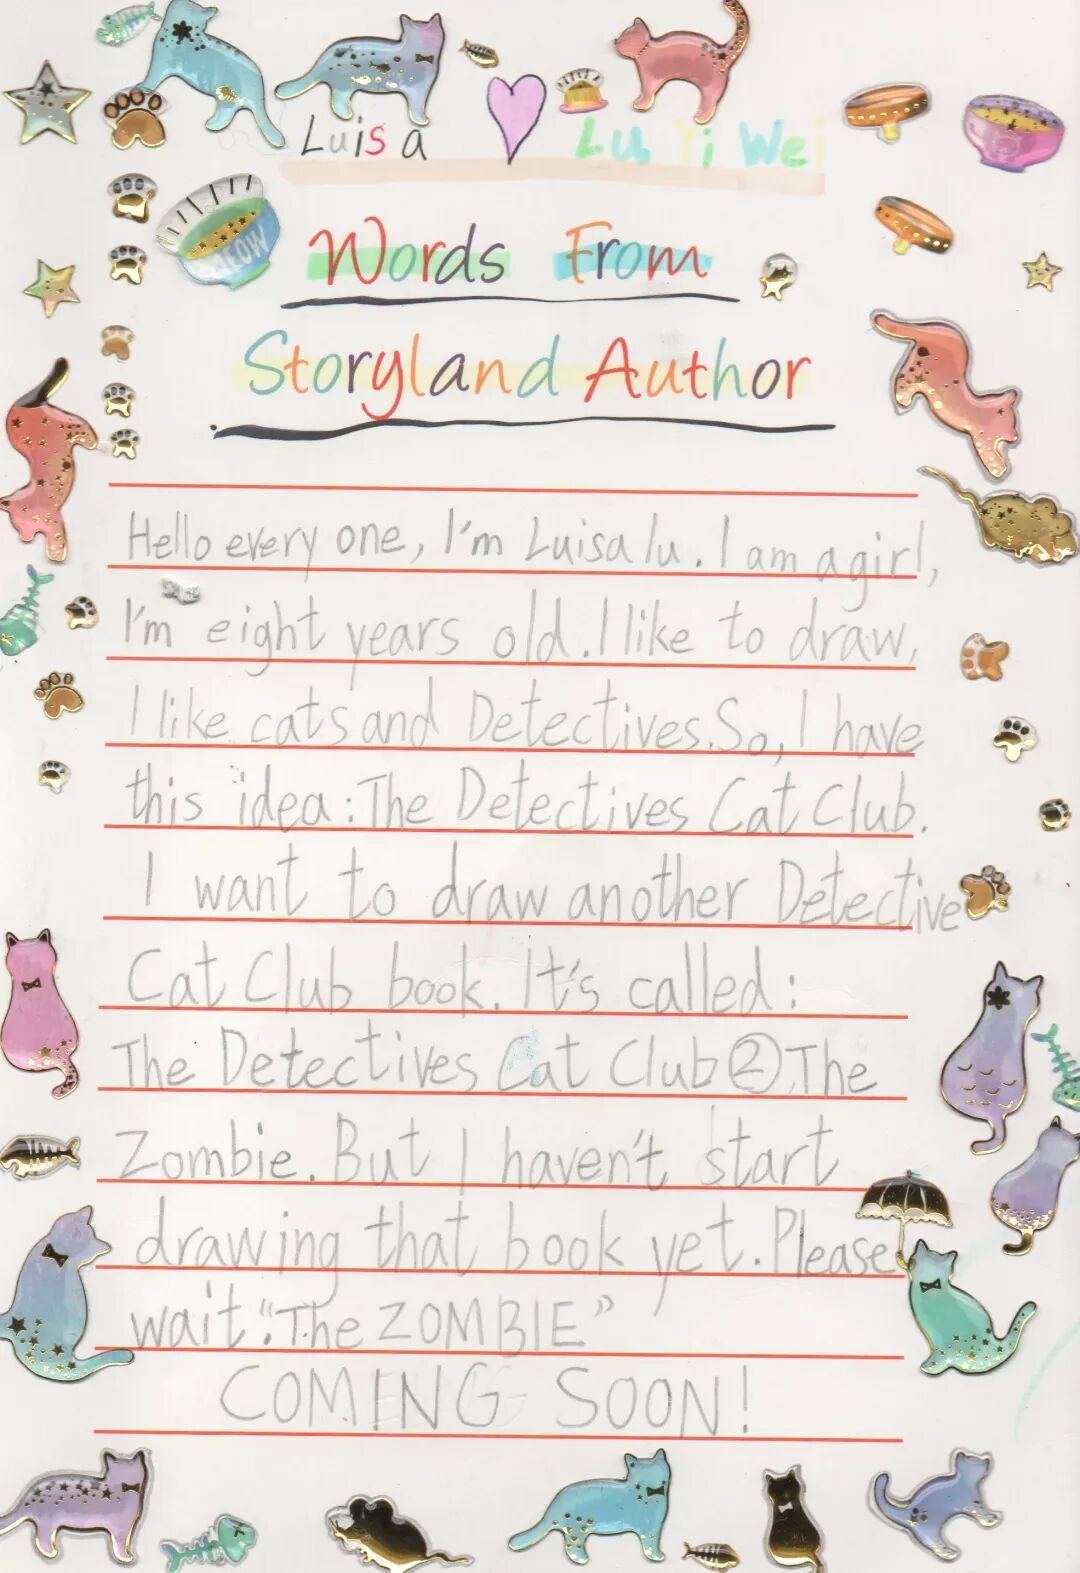 Luisa Lu Yi Wei
MEOW
Words From
Storyland Author
Hello every one, I'm Luisa lu. I am a girl,
I'm eight years old. I like to draw,
I like cats and Detectives. So, I have
this idea: The Detectives Cat Club.
I want to draw another Detective
Cat Club book. It's called:
The Detectives Cat Club②. The
Zombie. But I haven't start
drawing that book yet. Please
wait "The ZOMBIE"
COMING SOON!